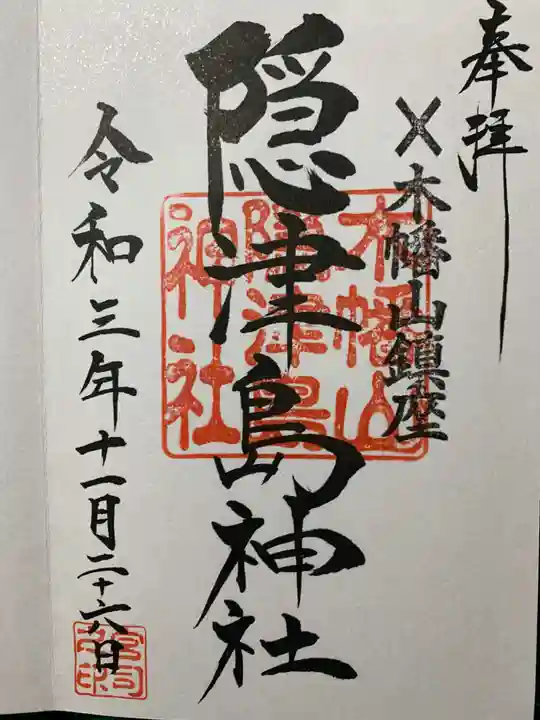 奉拝
木幡山鎮座
隠津島神社
木幡山
隠津島
神社
令和三年十一月二十六日
宮司
之印